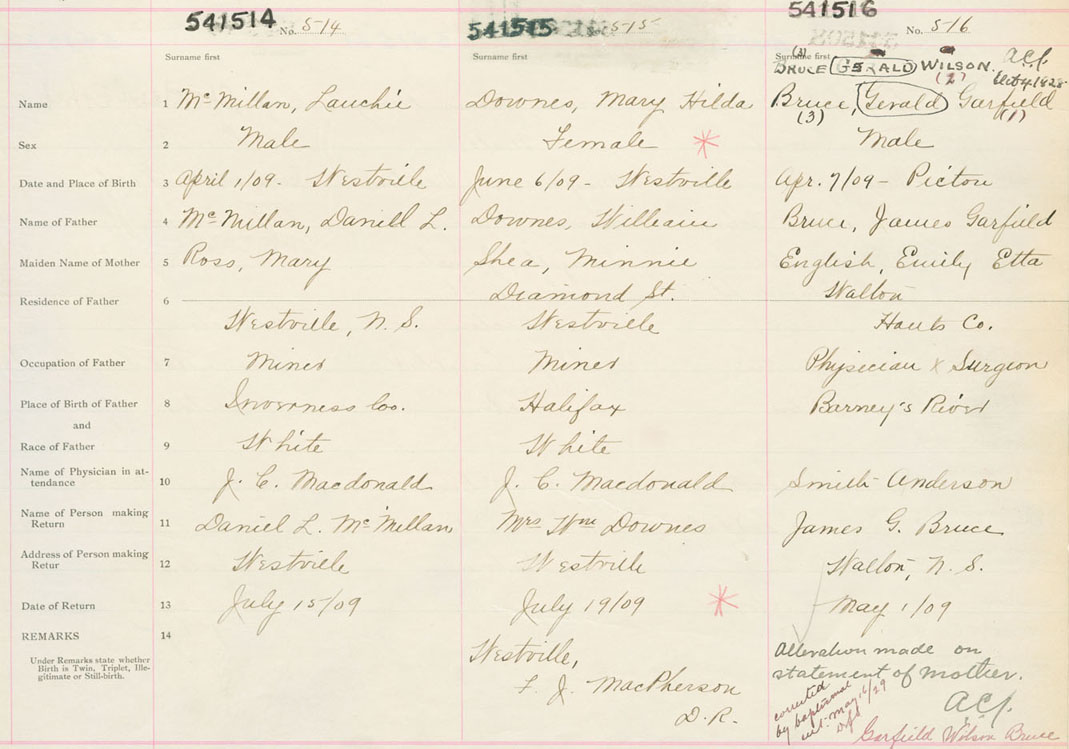 541514 No. 514
541515 515
541516 No. 516
Surname first Surname first Surname first
(3) (2)
BRUCE GERALD WILSON. A.C.J.
Name 1 McMillan, Lauchie Downes, Mary Hilda Bruce, Gerald Garfield
(3) (1)
Sex 2 Male Female Male
Date and Place of Birth 3 April 1/09. Westville June 6/09 - Westville Apr. 7/09 - Pictou
Name of Father 4 McMillan, Daniel L. Downes, William Bruce, James Garfield
Maiden Name of Mother 5 Ross, Mary Shea, Minnie English, Emily Etta
Residence of Father 6 Diamond St. Walton
Westville, N. S. Westville Hants Co.
Occupation of Father 7 Miner Miner Physician & Surgeon
Place of Birth of Father 8 Inverness Co. Halifax Barney's River
and
Race of Father 9 White White
Name of Physician in at-
tendance 10 J. C. Macdonald J. C. Macdonald Smith Anderson
Name of Person making
Return 11 Daniel L. McMillan Mrs Wm Downes James G. Bruce
Address of Person making
Retur 12 Westville Westville Walton, N. S.
Date of Return 13 July 15/09 July 19/09 May 1/09
REMARKS 14
Under Remarks state whether
Birth is Twin, Triplet, Ille-
gitimate or Still-birth.
Westville,
F. J. MacPherson
D. R.
Alteration made on
statement of mother.
A.C.J.
corrected
by baptismal
cert. May 16/29
Garfield Wilson Bruce